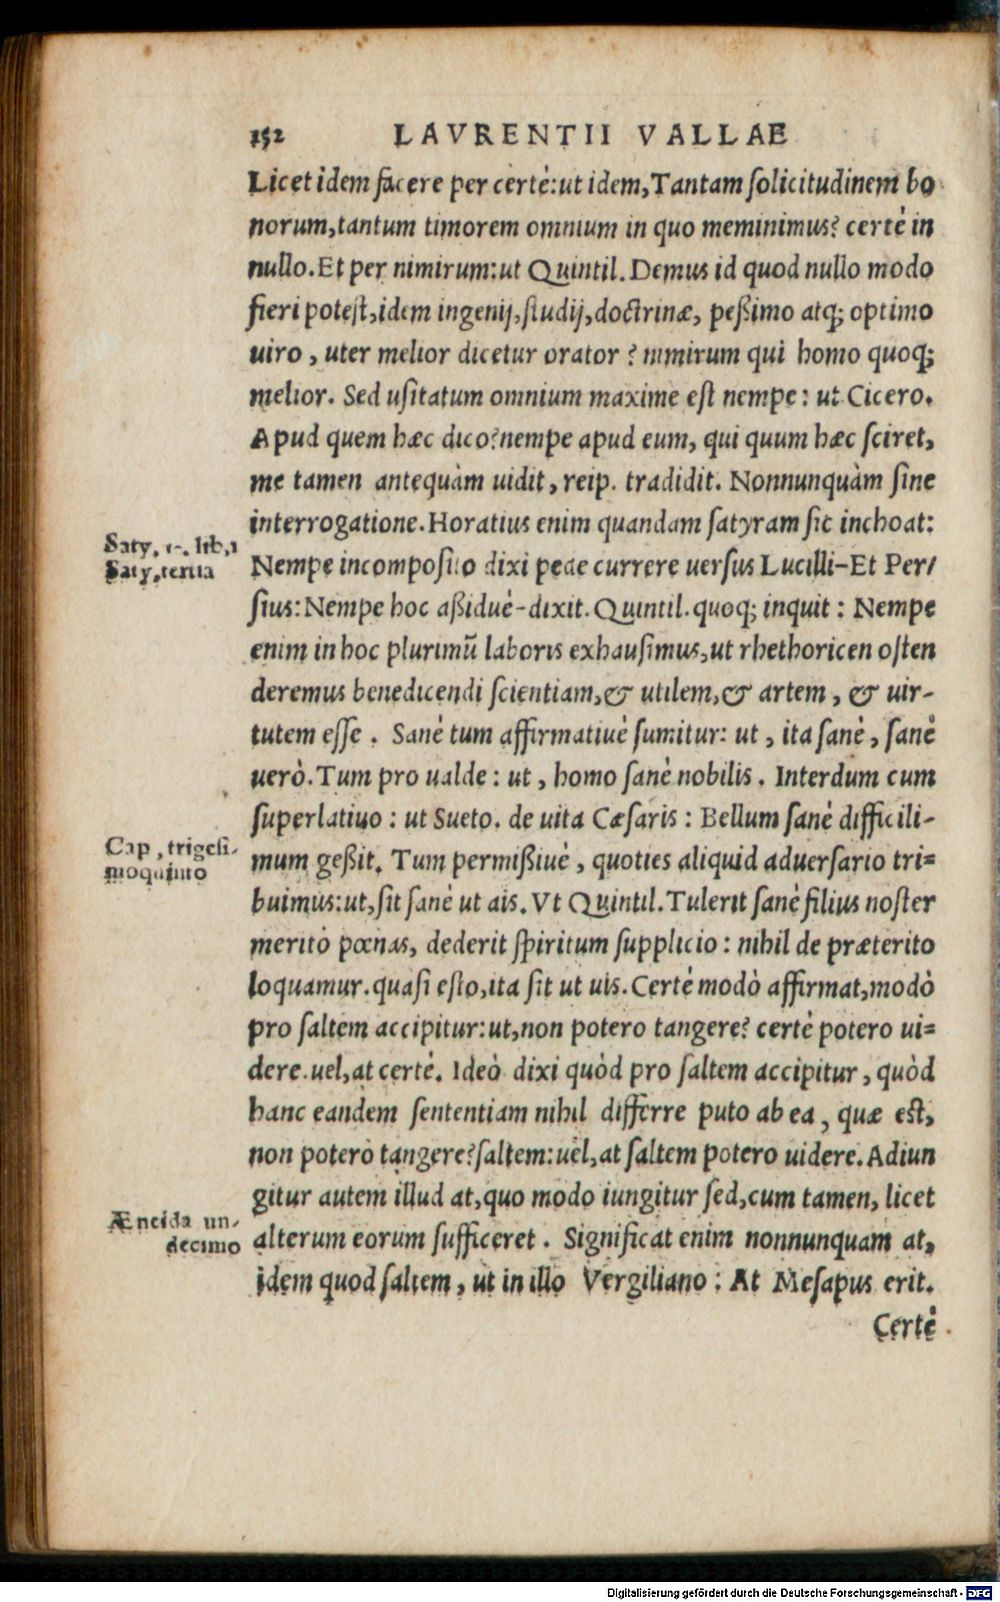 152 LAVRENTII VALLAE
Licet idem facere per certè: ut idem, Tantam solicitudinem bo
norum, tantum timorem omnium in quo meminimus? certè in
nullo. Et per nimirum: ut Quintil. Demus id quod nullo modo
fieri potest, idem ingenij, studij, doctrinæ, peßimo atq; optimo
uiro, uter melior dicetur orator? nimirum qui homo quoq;
melior. Sed usitatum omnium maxime est nempe: ut Cicero.
Apud quem hæc dico? nempe apud eum, qui quum hæc sciret,
me tamen antequàm uidit, reip. tradidit. Nonnunquàm sine
interrogatione. Horatius enim quandam satyram sic inchoat:
Saty. 1. lib. 1
Saty. tertia
Nempe incomposito dixi pede currere uersus Lucilli-Et Per/
sius: Nempe hoc aßiduè-dixit. Quintil. quoq; inquit: Nempe
enim in hoc plurimũ laboris exhausimus, ut rhethoricen osten
deremus benedicendi scientiam, & utilem, & artem, & uir-
tutem esse. Sanè tum affirmatiuè sumitur: ut, ita sanè, sanè
uerò. Tum pro ualde: ut, homo sanè nobilis. Interdum cum
superlatiuo: ut Sueto. de uita Cæsaris: Bellum sanè difficili-
Cap. trigesi-
moquinto
mum geßit. Tum permißiuè, quoties aliquid aduersario tri=
buimus: ut, sit sanè ut ais. Vt Quintil. Tulerit sanè filius noster
meritò pœnas, dederit spiritum supplicio: nihil de præterito
loquamur. quasi esto, ita sit ut uis. Certè modò affirmat, modò
pro saltem accipitur: ut, non potero tangere? certè potero ui=
dere. uel, at certè. Ideò dixi quòd pro saltem accipitur, quòd
hanc eandem sententiam nihil differre puto ab ea, quæ est,
non potero tangere? saltem: uel, at saltem potero uidere. Adiun
gitur autem illud at, quo modo iungitur sed, cum tamen, licet
Æneida un-
decimo
alterum eorum sufficeret. Significat enim nonnunquam at,
idem quod saltem, ut in illo Vergiliano: At Mesapus erit.
Certè
Digitalisierung gefördert durch die Deutsche Forschungsgemeinschaft - DFG